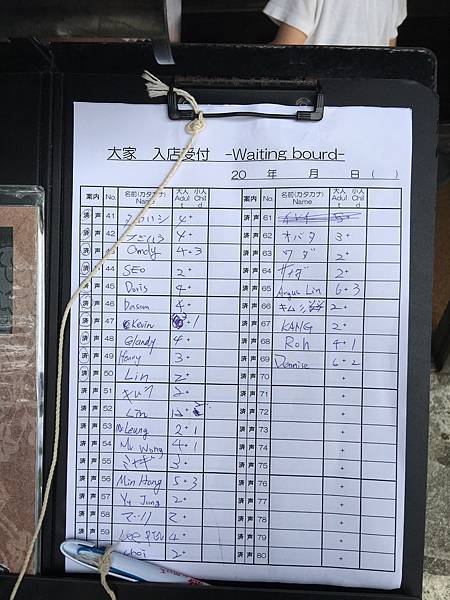 大家 入店受付 -Waiting bourd-
20 年 月 日( )
案内 No. 名前(カタカナ) Name 大人 Adult 小人 Child 案内 No. 名前(カタカナ) Name 大人 Adult 小人 Child
済 声 41 4 + 済 声 61
済 声 42 4 + 済 声 62 オバタ 3 +
済 声 43 Omdy 4 + 3 済 声 63 ワダ 2 +
済 声 44 SEO 2 + 済 声 64 2 +
済 声 45 Doris 4 + 済 声 65 Angus Lin 6 + 3
済 声 46 Dasom 4 + 済 声 66 キム 2 +
済 声 47 Kevin + 1 済 声 67 KANG 2 +
済 声 48 Glandy 4 + 済 声 68 Roh 4 + 1
済 声 49 Henry 3 + 済 声 69 Dennise 6 + 2
済 声 50 Lin 2 + 済 声 70 +
済 声 51 2 + 済 声 71 +
済 声 52 Lin 済 声 72 +
済 声 53 Mr Leung 2 + 1 済 声 73 +
済 声 54 Mr Wong 4 + 1 済 声 74 +
済 声 55 ミヤギ 3 + 済 声 75 +
済 声 56 Min Hong 5 + 3 済 声 76 +
済 声 57 Yu Jung 2 + 済 声 77 +
済 声 58 2 + 済 声 78 +
済 声 59 Lee 4 + 済 声 79 +
choi 2 + 済 声 80 +